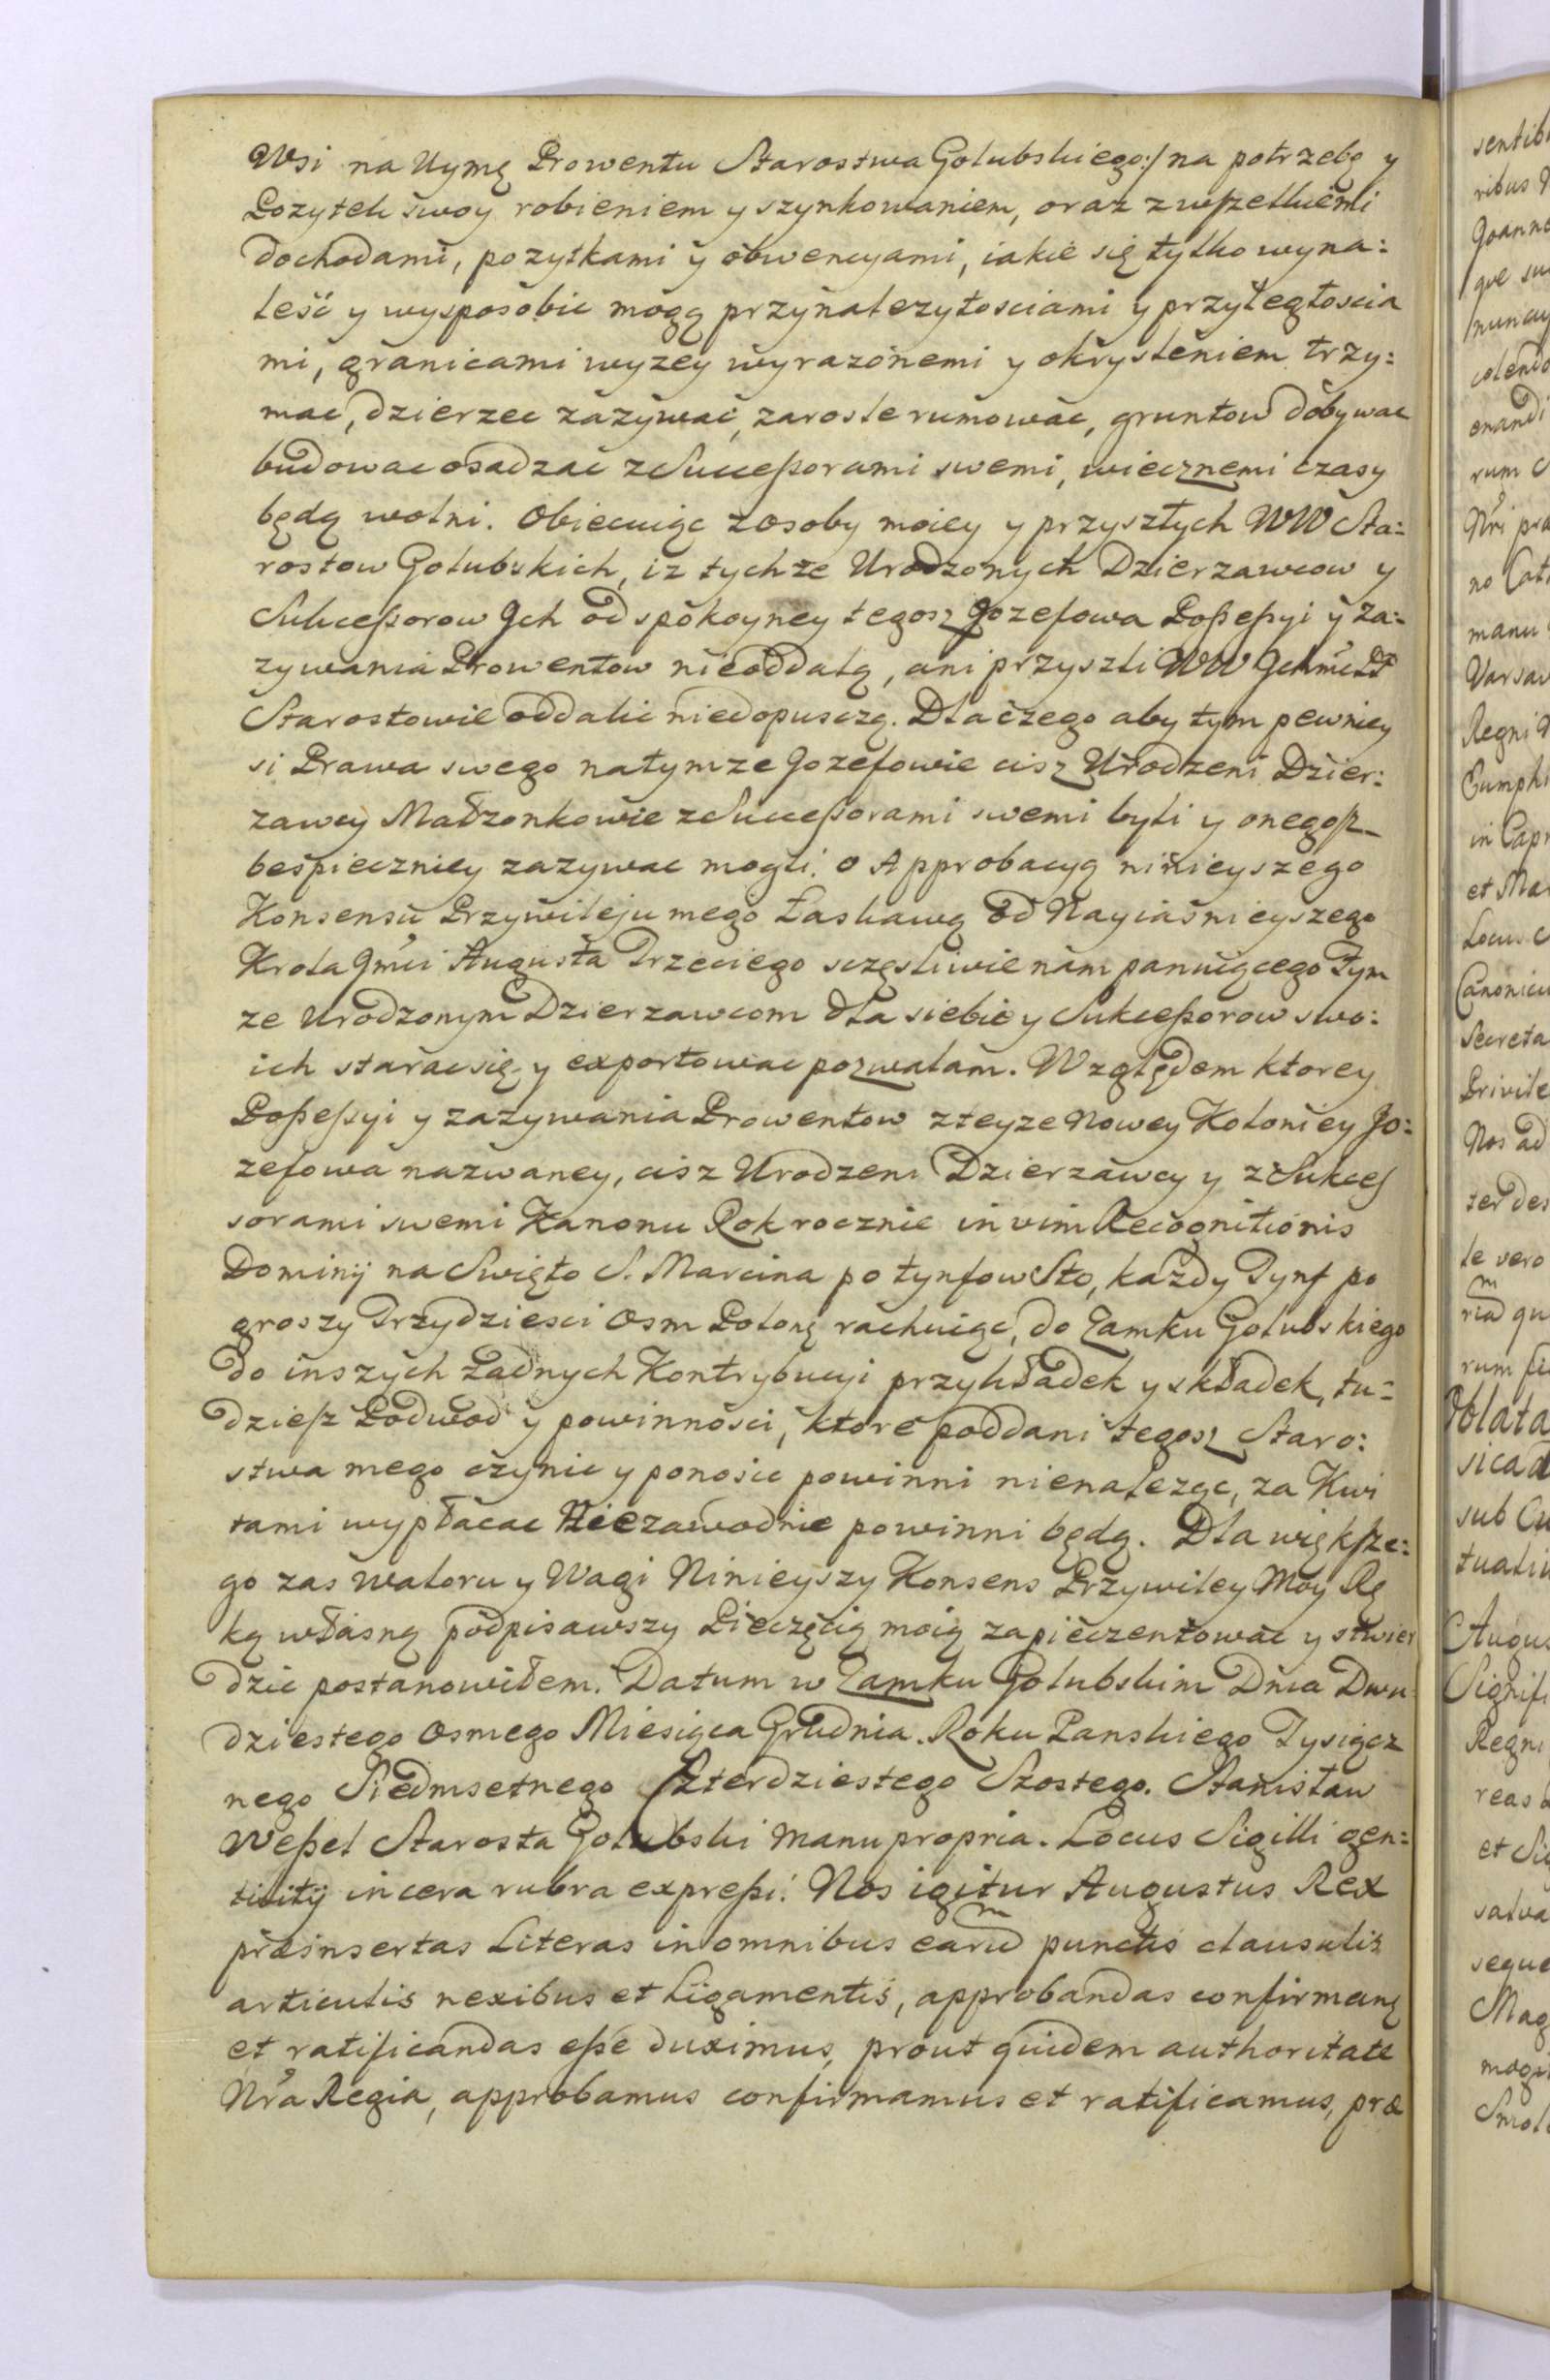 Wsi na Uymę Prowentu Starostwa Golubskiego:/ na potrzebę y
Pozytek swoy robieniem y szynkowaniem, oraz zwszelkiemi
dochodami, pozytkami y obwencyami, iakie się tylko wyna:
leść y wysposobic mogą przynalezytosciami y przyległoscia
mi, granicami wyzey wyrazonemi y okrysleniem trzy:
mac, dzierzec zazywać, zarosle rumować, gruntow dobywac
budowac osadzać z Successorami swemi, wiecznemi czasy
będą wolni. Obiecuiąc z osoby moiey y przyszłych WW Sta:
rostow Golubskich, iz tychze Urodzonych Dzierzawcow y
Sukcessorow Ich od spokoyney tegosz Jozefowa Possessyi y za:
zywania Prowentow nieoddalą, ani przyszli WW Ichmć PP
Starostowie oddalic niedopusczą. Dlaczego aby tym pewniey
si Prawa swego natymze Jozefowie cisz Urodzeni Dzier:
zawcy Małzonkowie z Successorami swemi byli y onegosz
bespieczniey zazywac mogli. o Approbacyą ninieyszego
Konsensu Przywileju mego Łaskawą od Nayiasnieyszego
Krola Jmci Augusta Trzeciego sczęsliwie nam panuiącego Tym
ze Urodzonym Dzierzawcom dla siebie y Sukcessorow swo:
ich starac się y exportowac pozwalam. Względem ktorey
Possessyi y zazywania Prowentow z teyze Nowey Koloniey Jo:
zefowa nazwaney, cisz Urodzeni Dzierzawcy y z Sukces
sorami swemi Kanonu Rok rocznie in vim Recognitionis
Dominij na Swięto S. Marcina po tynfow Sto, kazdy Tynf po
groszy Trzydziesci Osm Polonę rachuiąc, do Zamku Golubskiego
do inszych Zadnych Kontrybucyi przykładek y składek, tu:
dziesz Podwod y powinności, ktore poddani tegosz Staro:
stwa mego czynic y ponosic powinni nienaleząc, za Kwi
tami wypłacac Niezawodnie powinni będą. Dla większe:
go zas waloru y Wagi Ninieyszy Konsens Przywiley Moy Rę
ką własną podpisawszy Pieczęcią moią zapieczentować y stwier
dzic postanowiłem. Datum w Zamku Golubskim Dnia Dwu
dziestego Osmego Miesiąca Grudnia. Roku Panskiego Tysiącz
nego Siedmsetnego Czterdziestego Szostego. Stanisław
Wessel Starosta Golubski manu propria. Locus Sigilli gen:
tilitij in cera rubra expressi. Nos igitur Augustus Rex
præinsertas Literas in omnibus earum punctis clausulis
articulis nexibus et Ligamentis, approbandas confirmanę
et ratificandas esse duximus, prout quidem authoritate
Nra Regia, approbamus confirmamus et ratificamus, præ